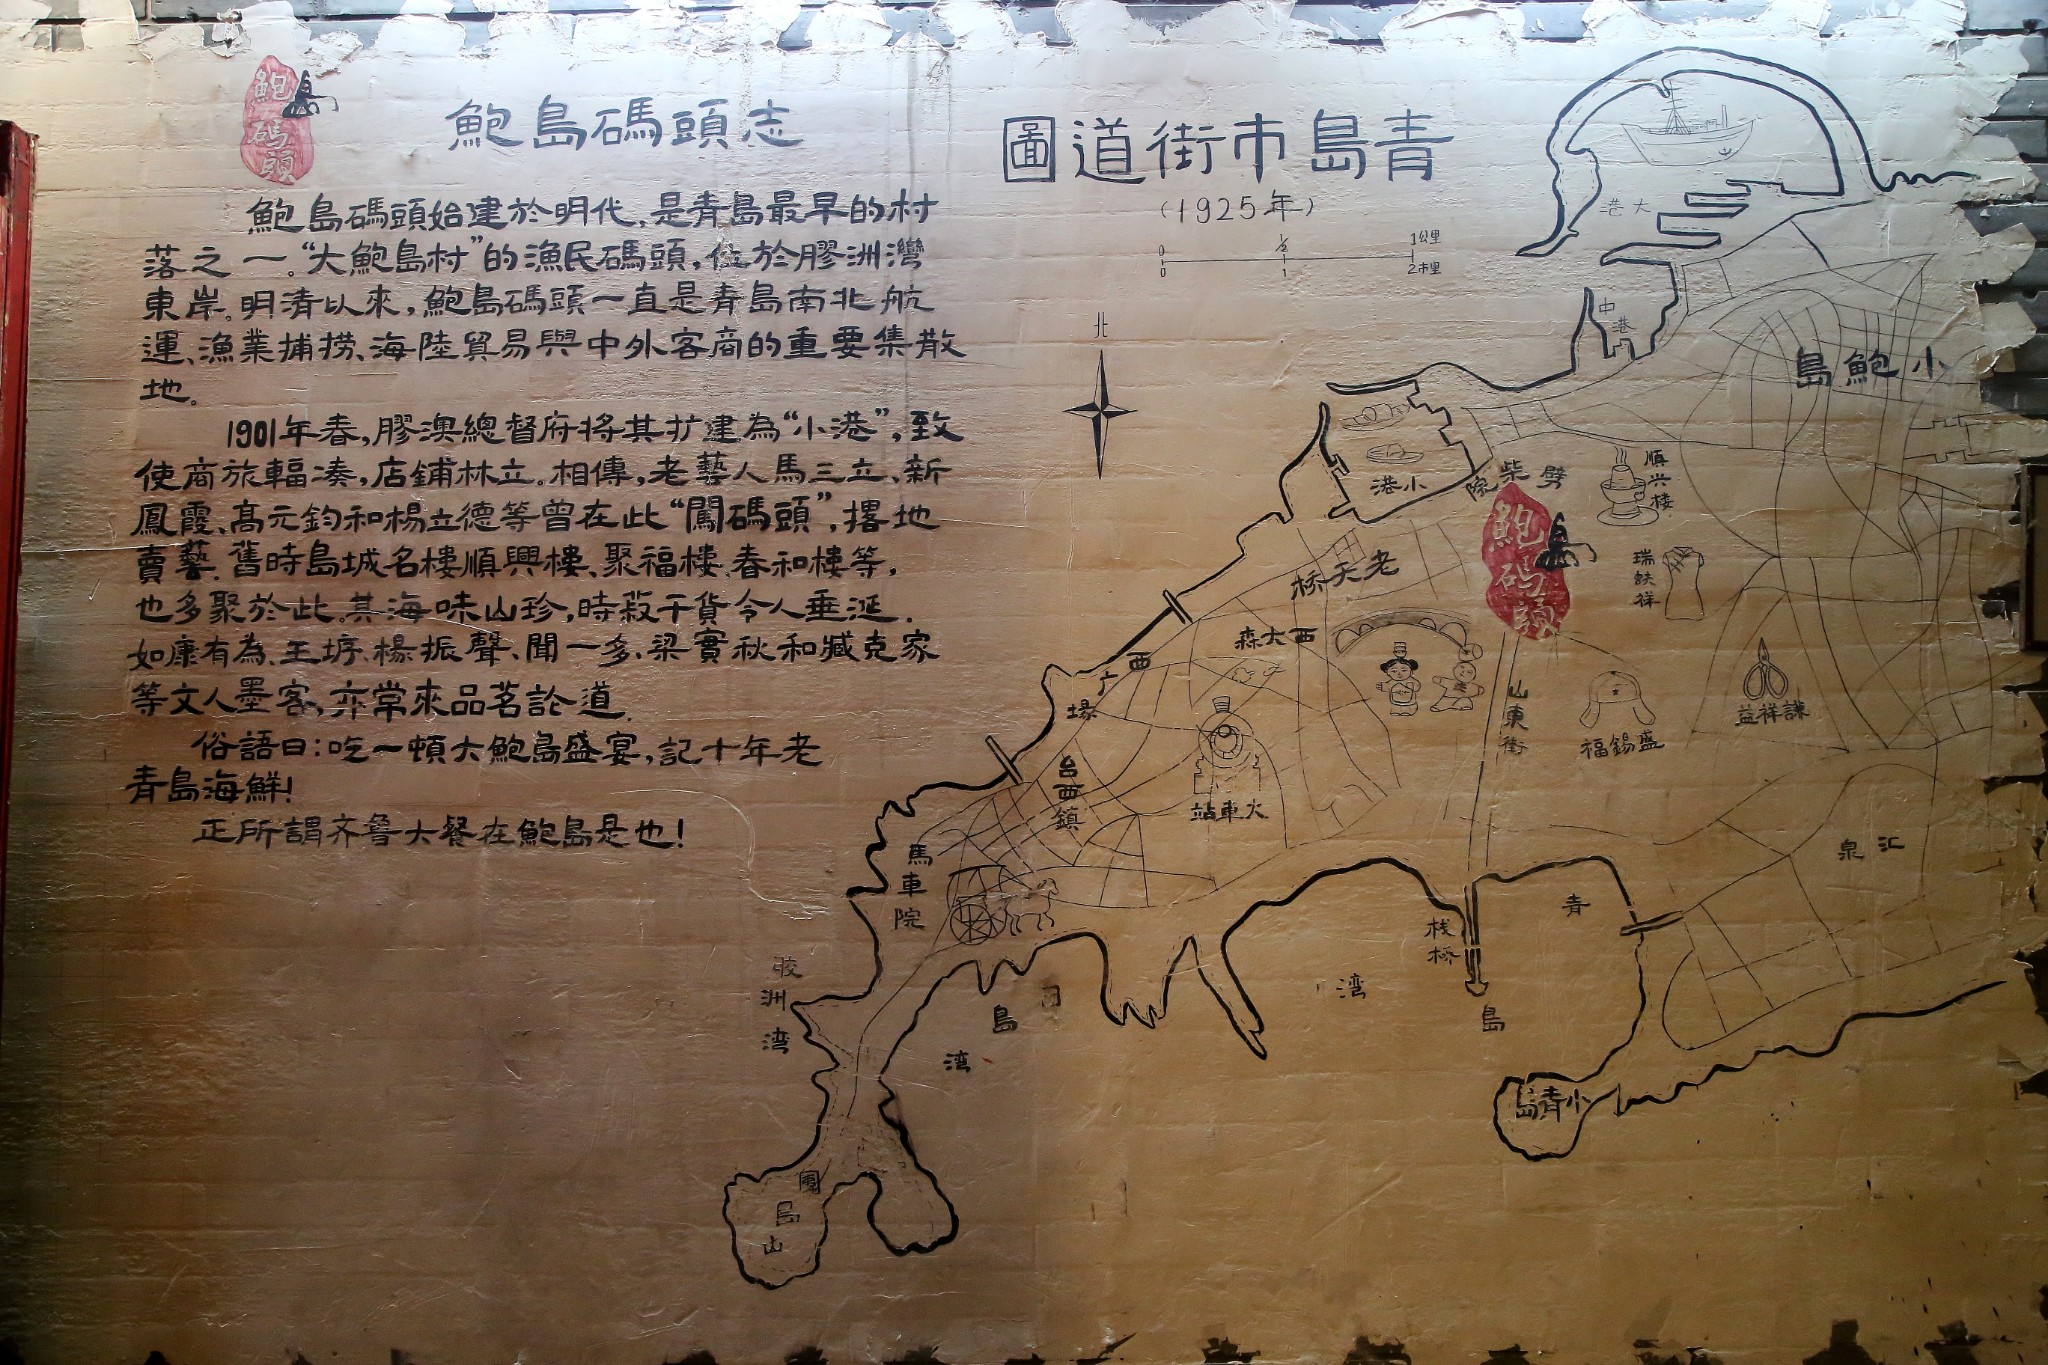 鮑島碼頭
鮑島碼頭志
鮑島碼頭始建於明代，是青島最早的村
落之一。“大鮑島村”的漁民碼頭，位於膠洲灣
東岸。明清以來，鮑島碼頭一直是青島南北航
運、漁業捕撈、海陸貿易與中外客商的重要集散
地。
1901年春，膠澳總督府將其扩建為“小港”，致
使商旅輻凑，店鋪林立。相傳，老藝人馬三立、新
鳳霞、高元鈞和楊立德等曾在此“闖碼頭”，撂地
賣藝。舊時島城名樓順興樓、聚福樓、春和樓等，
也多聚於此。其海味山珍，時菽干貨令人垂涎．
如康有為、王垿、楊振聲、聞一多、梁實秋和臧克家
等文人墨客，亦常來品茗論道．
俗語曰：吃一頓大鮑島盛宴，記十年老
青島海鮮！
正所謂齐魯大餐在鮑島是也！
圖道街市島青
（1925年）
0 ½ 1公里
0 1 2市里
北
大港
中港
小鮑島
小港
劈柴院
順兴楼
鮑島碼頭
瑞蚨祥
老天桥
西大森
西广場
山東街
盛錫福
謙祥益
火車站
台西鎮
馬車院
汇泉
栈桥
青島湾
胶洲湾
島湾
小青島
團島山